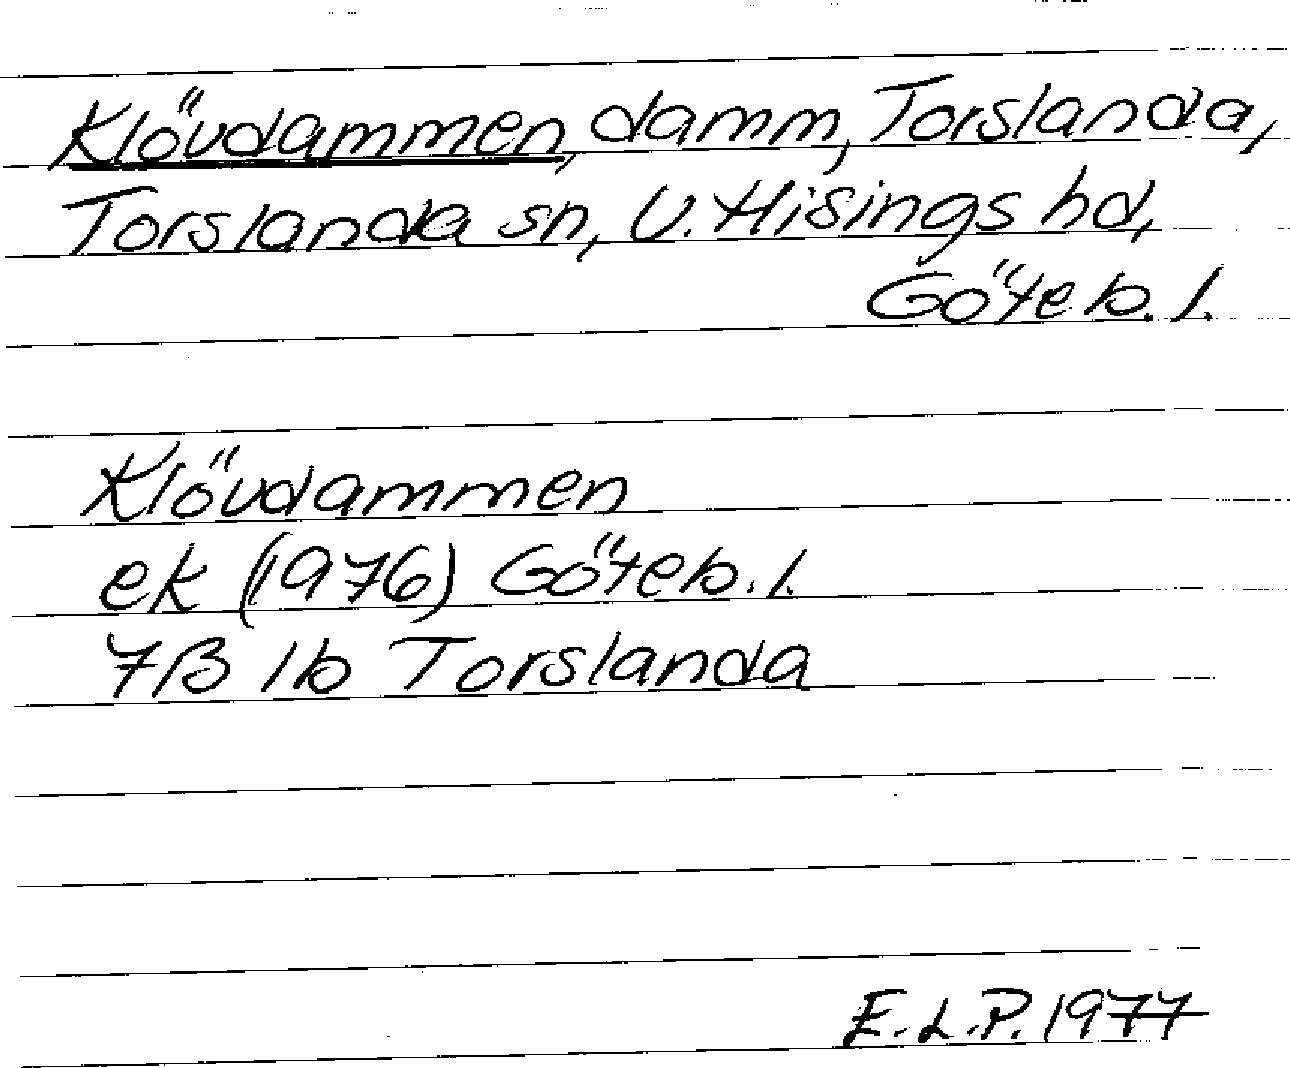 Klövdammen, damm, Torslanda,
Torslanda sn, V. Hisings hd,
Göteb. l.
Klövdammen
ek (1976) Göteb. l.
7B 1b Torslanda
E.L.P. 1977